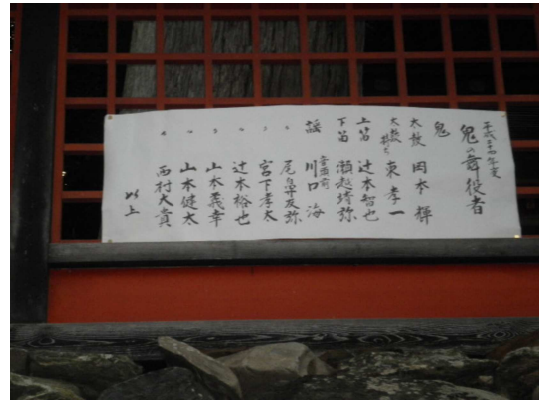 平成二十四年度
鬼の舞役者
鬼
太鼓 岡本 輝
太鼓持ち 東 孝一
上笛 辻本智也
下笛 瀬越靖弥
謡 川口 海
〃 尾鼻友弥
〃 宮下孝太
〃 辻本裕也
〃 山本義幸
〃 山本健太
〃 西村大貴
以上